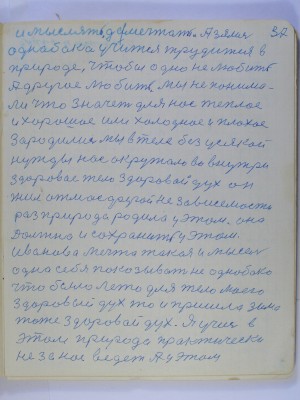 и мыслят, да мечтать. А земля 37
однабока учится трудится в
природе, чтобы одно не любить
А другое любить, мы не понима-
ли что значет для нас теплое
и хорошое или холодное и плохое
Зародились мы в теле без усякой
нужды нас окружало во внутри
здоровое тело здоровай дух он
жил от мое другой не зависемости
раз природа родила у этом. она
должно и сохранить у этом.
Иванова мечта такая и мысель
одна себя показывать не однобако
что было лето для тело моего
здоровый дух то и пришла зима
тоже здоровай дух. Я учусь в
этом природа практически
не за нос ведет А у этом